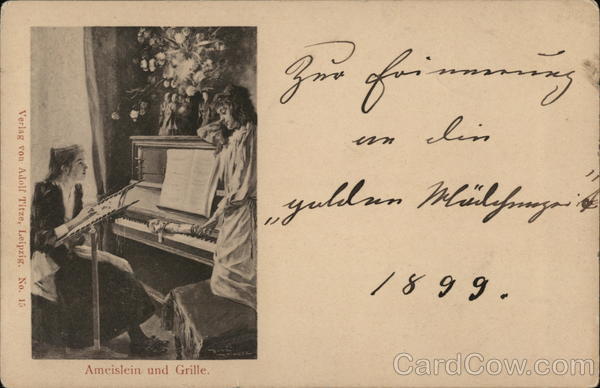 Zur Erinnerung
an die
„golden Mädchenzeit“
1899.
Verlag von Adolf Titze, Leipzig. No. 15
Ameislein und Grille.
CardCow.com